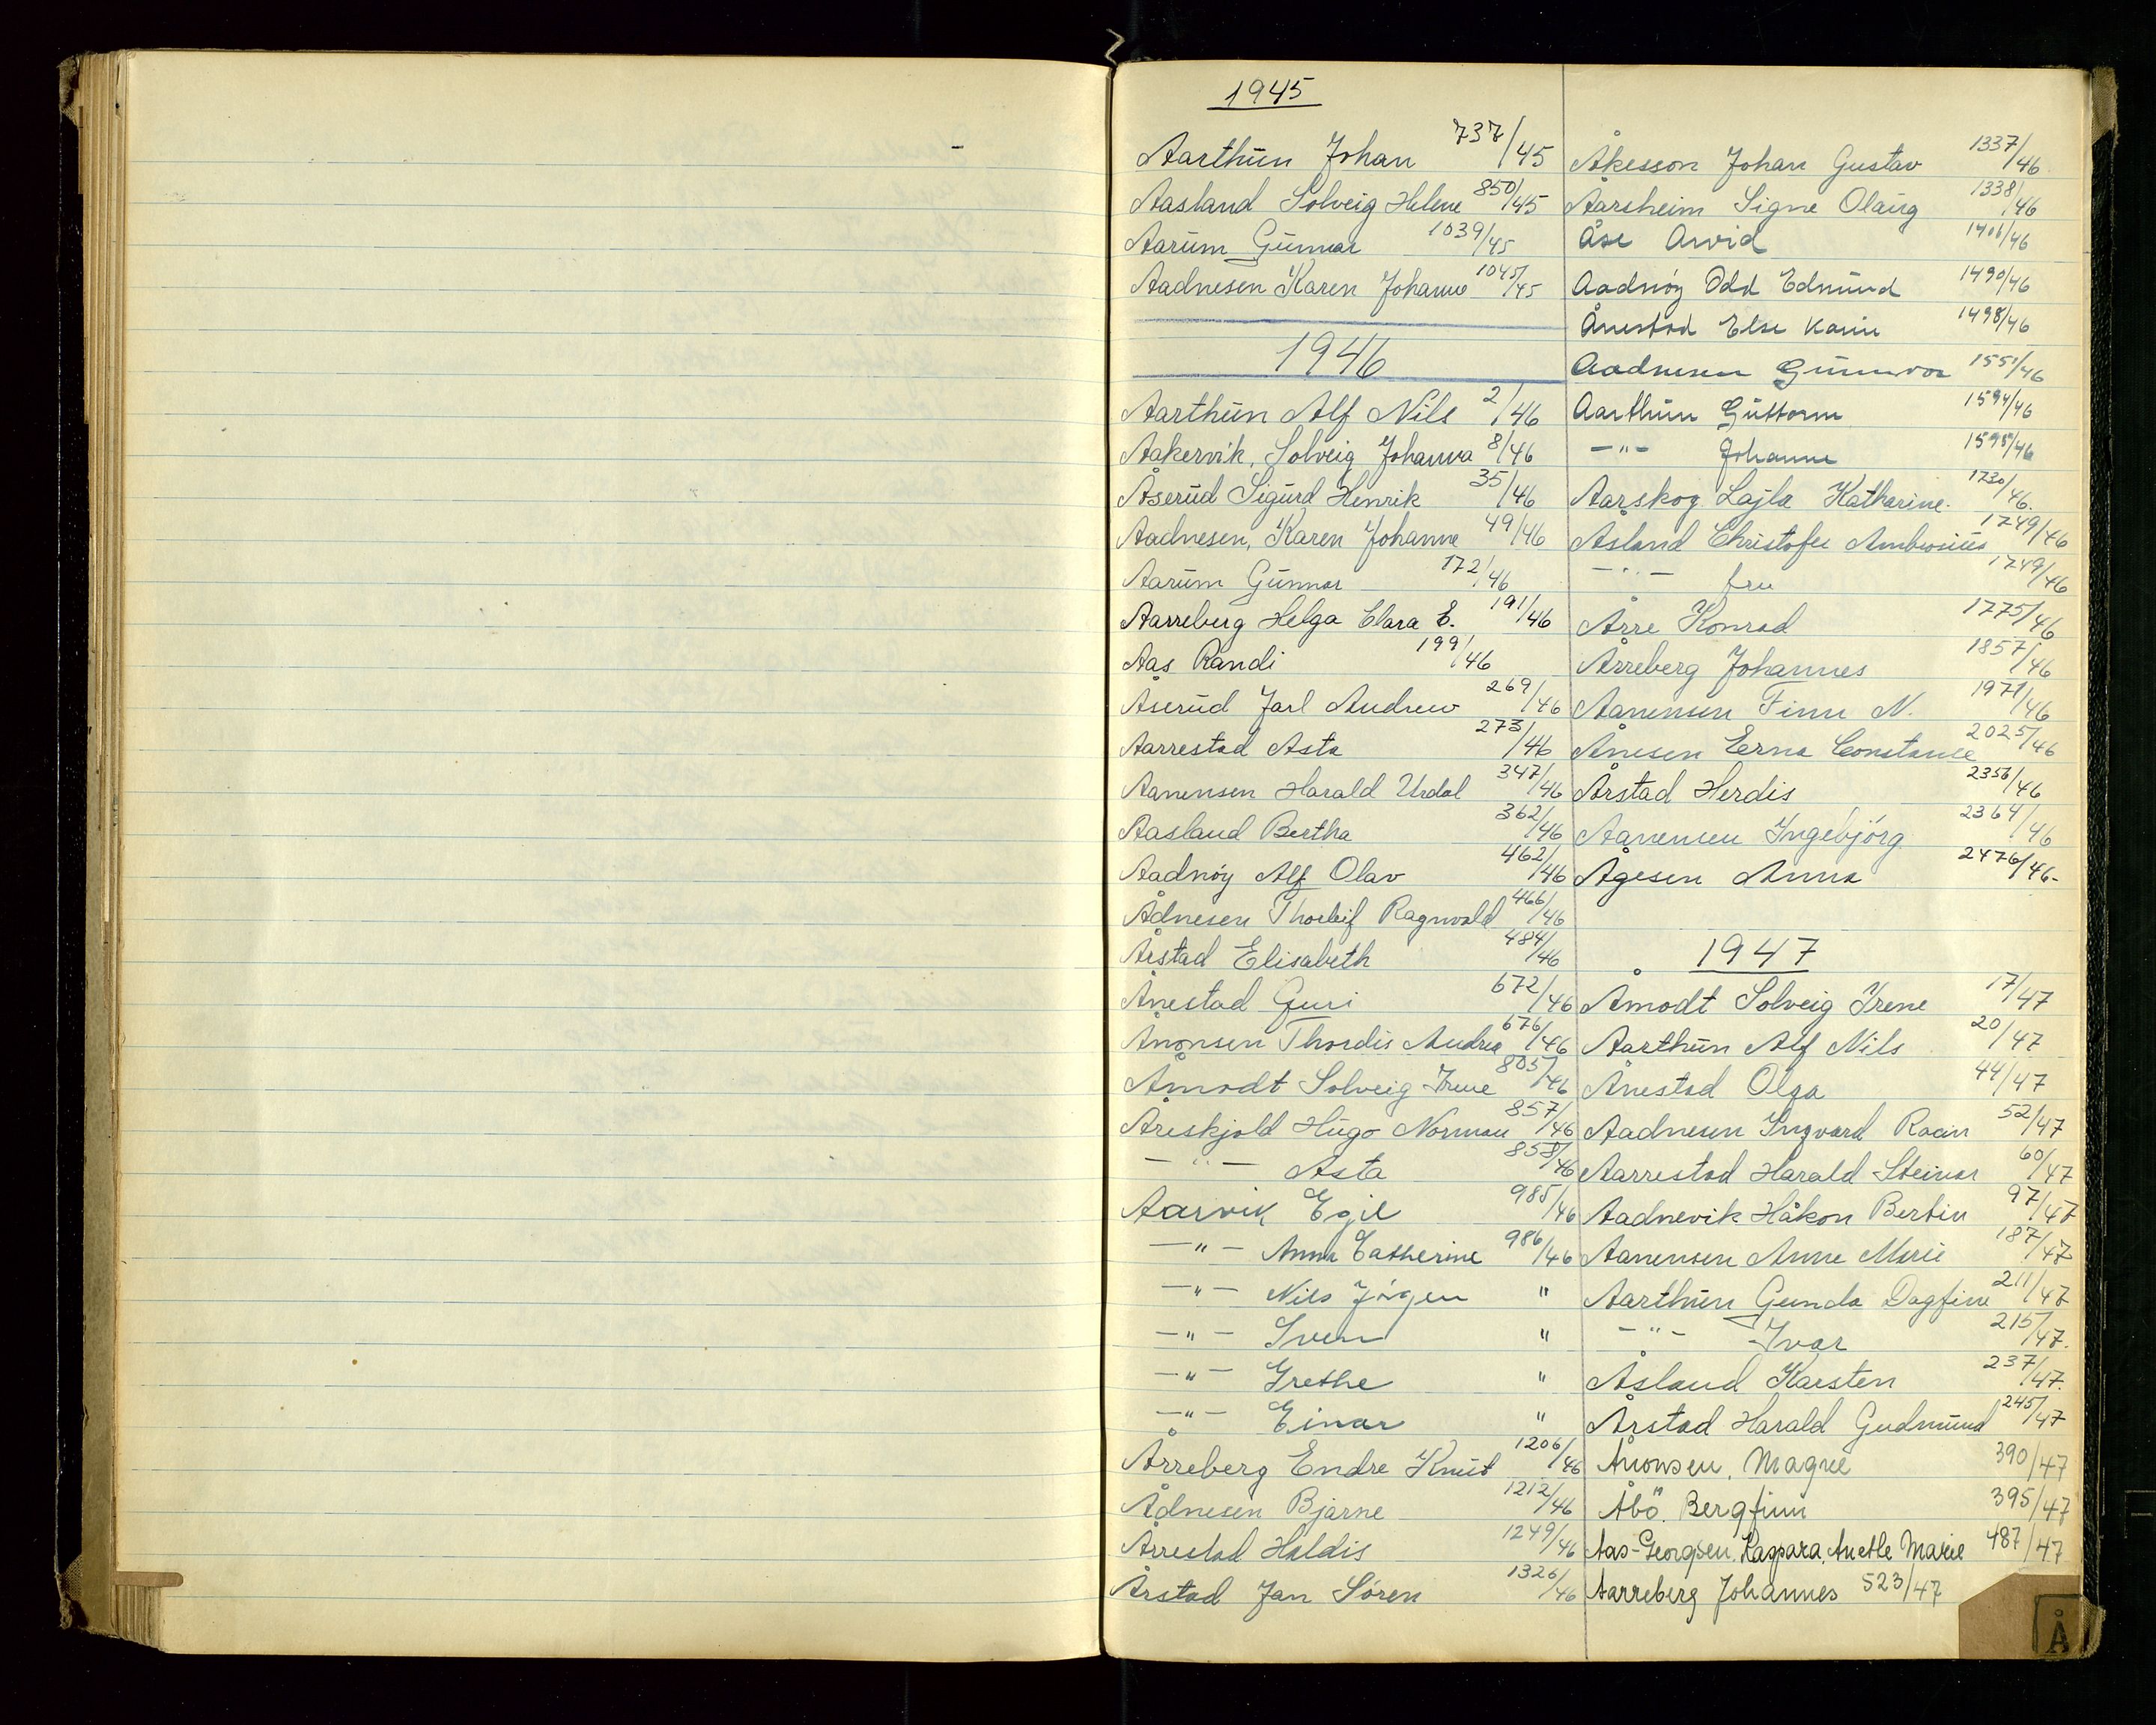 1945
Aarthun Johan 737/45
Aasland Solveig Helene 850/45
Aarum Gunnar 1039/45
Aadnesen Karen Johanne 1045/45
1946
Aarthun Alf Nils 2/46
Aakervik, Solveig Johanna 8/46
Åserud Sigurd Henrik 35/46
Aadnesen, Karen Johanne 49/46
Aarum Gunnar 172/46
Aarreberg Helga Clara E. 191/46
Aas Randi 199/46
Åserud Jarl Andrew 269/46
Aarrestad Asta 273/46
Aanensen Harald Urdal 347/46
Aasland Bertha 362/46
Aadnøy Alf Olav 462/46
Ådnesen Thorleif Ragnvald 466/46
Årstad Elisabeth 484/46
Ånestad Guri 672/46
Ånonsen Thordis Andrea 676/46
Åmodt Solveig Irene 805/46
Åreskjold Hugo Norman 857/46
—"— Asta 858/46
Aarvik Egil 985/46
—"— Anna Catherine 986/46
—"— Nils Jörgen "
—"— Sven "
—"— Grethe "
—"— Einar "
Årreberg Endre Knut 1206/46
Ådnesen Bjarne 1212/46
Årrestad Haldis 1249/46
Årstad Jan Sören 1326/46
Åkesson Johan Gustav 1337/46
Aarsheim Signe Olaug 1338/46
Åse Arvid 1406/46
Aadnøy Odd Edmund 1490/46
Ånestad Else Karin 1498/46
Aadnesen Gunnvor 1551/46
Aarthun Guttorm 1594/46
—"— Johanne 1595/46
Aarskog Lajla Katharine. 1730/46.
Åsland Christofer Ambrosius 1749/46
—"— fru 1749/46
Årre Konrad 1775/46
Årreberg Johannes 1857/46
Aanensen Finn N. 1971/46
Ånesen Erna Constance 2025/46
Årstad Herdis 2356/46
Aanensen Ingebjörg 2364/46
Ågesen Anna 2476/46.
1947
Åmodt Solveig Irene 17/47
Aarthun Alf Nils 20/47
Ånestad Olga 44/47
Aadnesen Ingvard 52/47
Aarrestad Harald Steinar 60/47
Aadnevik Håkon Bertin 97/47
Aanensen Anne Marie 187/47
Aarthun Gunda Dagfine 211/47
—"— Ivar 215/47.
Åsland Karsten 237/47.
Årstad Harald Gudmund 245/47
Ånonsen, Magne 390/47
Åbö. Bergfinn 395/47
Aas-Georgsen, Kaspara, Anethe Marie 487/47
Aarreberg Johannes 523/47
Å